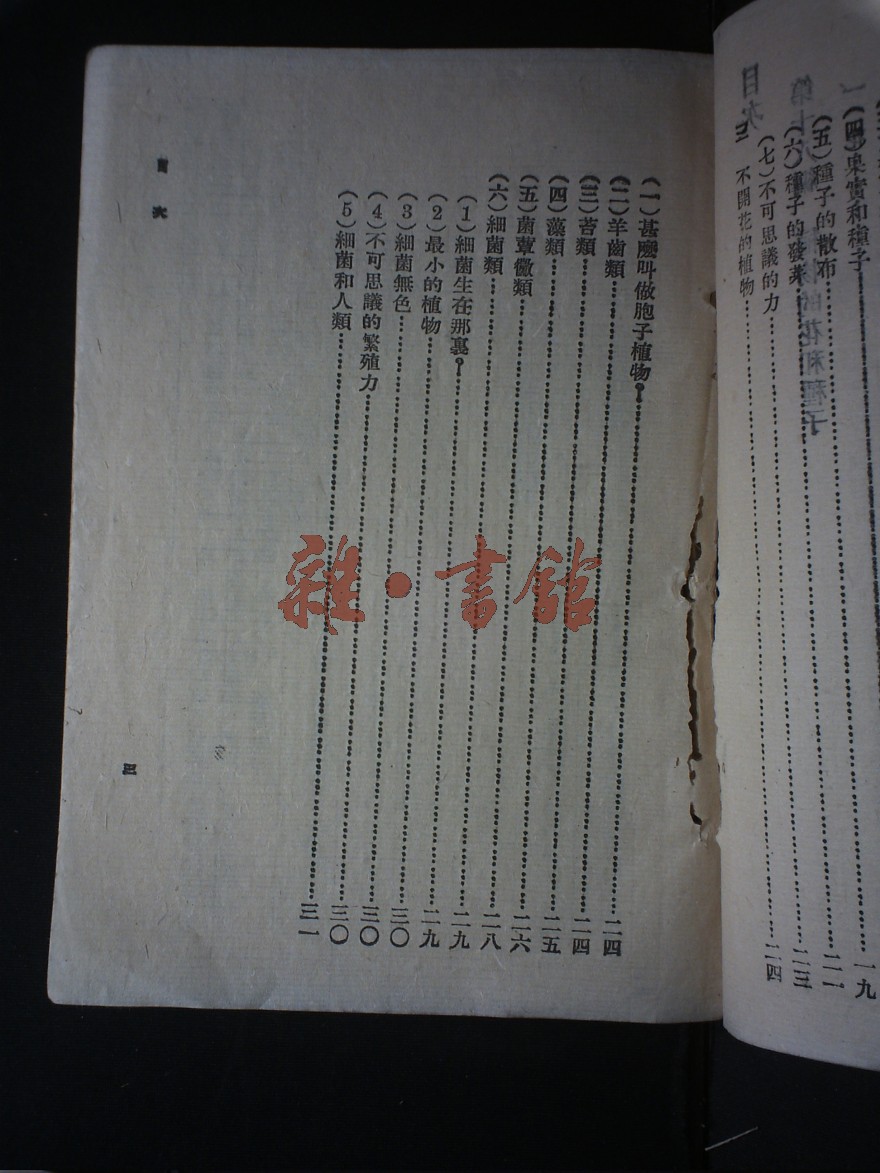 (四)果實和種子……一九
(五)種子的散布……二一
(六)種子的發芽……二三
(七)不可思議的力……二四
不開花的植物……
(一)甚麽叫做胞子植物……二四
(二)羊齒類……二四
(三)苔類……二五
(四)藻類……二六
(五)菌蕈黴類……二八
(六)細菌類……二九
(1)細菌生在那裏……二九
(2)最小的植物……三〇
(3)細菌無色……三〇
(4)不可思議的繁殖力……三〇
(5)細菌和人類……三一
目次
三
雜·書館